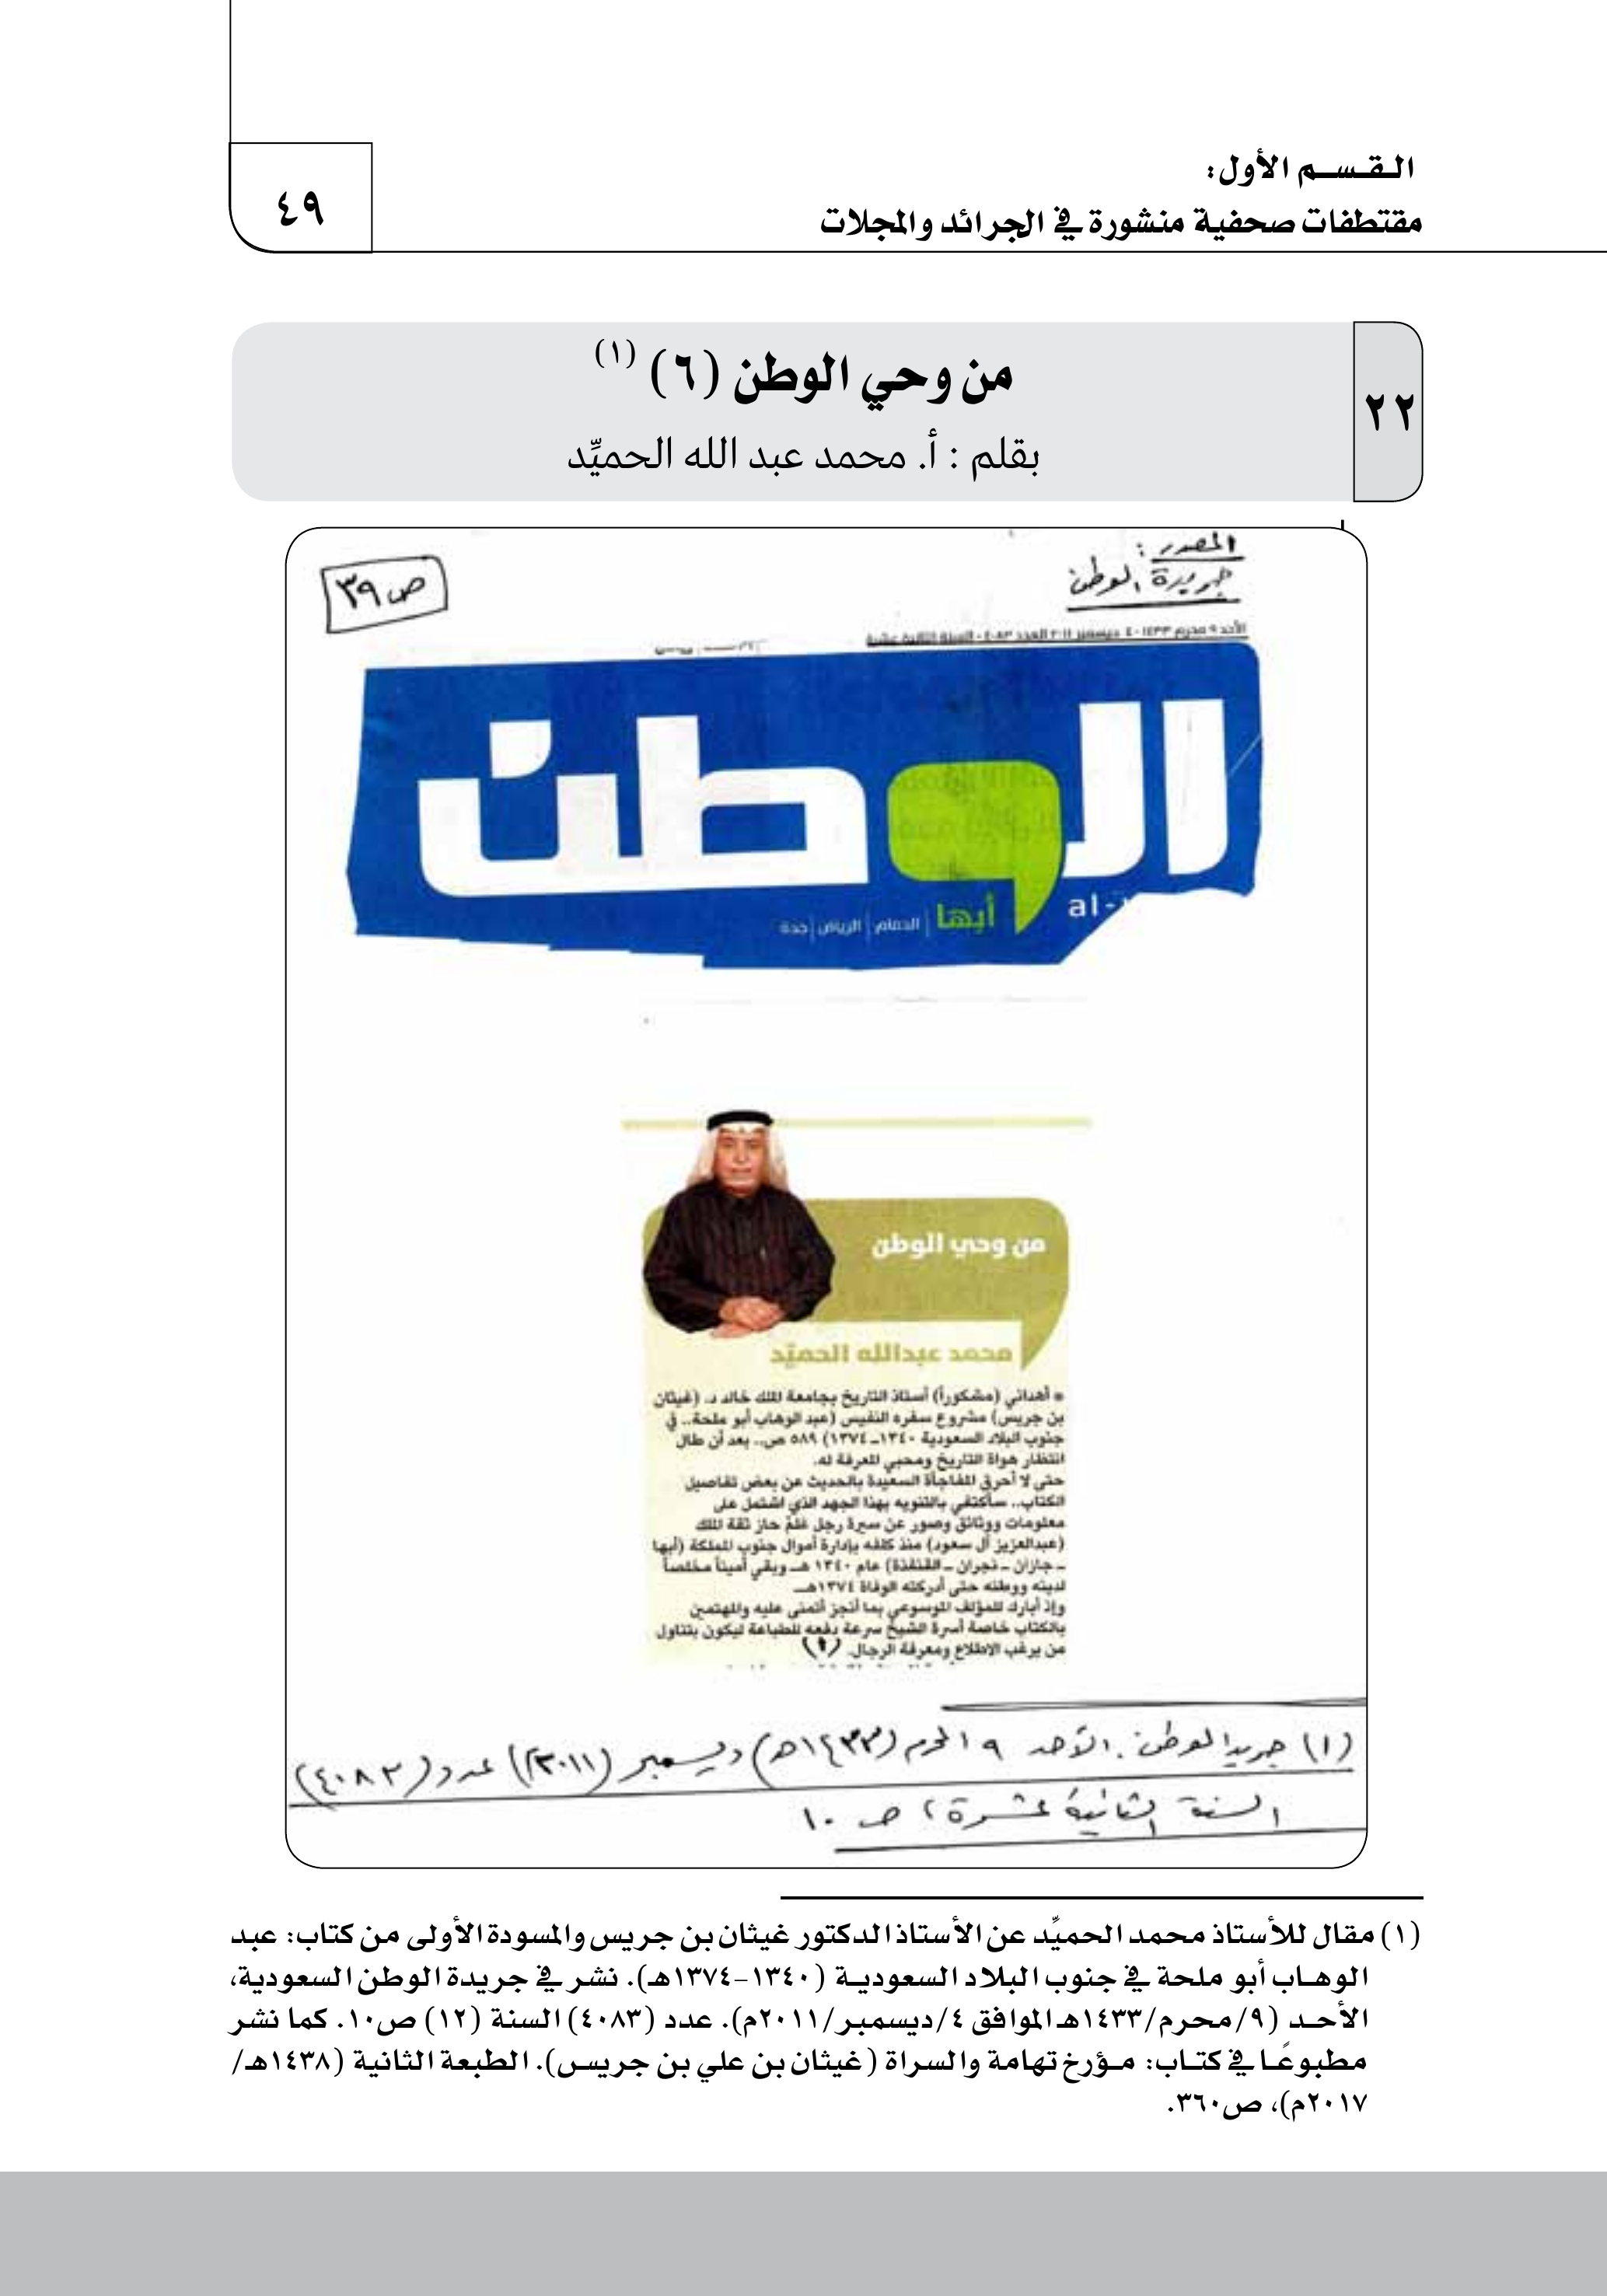 القسم الأول:
مقتطفات صحفية منشورة في الجرائد والمجلات
٤٩
٢٢
من وحي الوطن (٦) (١)
بقلم : أ. محمد عبد الله الحميِّد
المصدر :
جريدة الوطن
ص٣٩
الأحد ٩ محرم ١٤٣٣ - ٤ ديسمبر ٢٠١١ العدد ٤٠٨٣ - السنة الثانية عشرة
الوطن
al-
أبها | الدمام | الرياض | جدة
من وحي الوطن
محمد عبدالله الحميّد
* أهداني (مشكوراً) أستاذ التاريخ بجامعة الملك خالد د. (غيثان
بن جريس) مشروع سفره النفيس (عبد الوهاب أبو ملحة.. في
جنوب البلاد السعودية ١٣٤٠ــ١٣٧٤) ٥٨٩ ص.. بعد أن طال
انتظار هواة التاريخ ومحبي المعرفة له.
حتى لا أحرق المفاجأة السعيدة بالحديث عن بعض تفاصيل
الكتاب.. سأكتفي بالتنويه بهذا الجهد الذي اشتمل على
معلومات ووثائق وصور عن سيرة رجل علمٌ حاز ثقة الملك
(عبدالعزيز آل سعود) منذ كلفه بإدارة أموال جنوب المملكة (أبها
ـ جازان ـ نجران ـ القنفذة) عام ١٣٤٠ هـ وبقي أميناً مخلصاً
لدينه ووطنه حتى أدركته الوفاة ١٣٧٤هـ
وإذ أبارك للمؤلف الموسوعي بما أنجز أتمنى عليه والمهتمين
بالكتاب خاصة أسرة الشيخ سرعة دفعه للطباعة ليكون بتناول
من يرغب الاطلاع ومعرفة الرجال. (١)
(١) جريدة الوطن . الأحد ٩ المحرم (١٤٣٣هـ) ديسمبر (٢٠١١) عدد (٤٠٨٣)
السنة الثانية عشرة، ص ١٠
(١) مقال للأستاذ محمد الحميِّد عن الأستاذ الدكتور غيثان بن جريس والمسودة الأولى من كتاب: عبد
الوهاب أبو ملحة في جنوب البلاد السعودية (١٣٤٠-١٣٧٤هـ). نشر في جريدة الوطن السعودية،
الأحد (٩/محرم/١٤٣٣هـ الموافق ٤/ديسمبر/٢٠١١م). عدد (٤٠٨٣) السنة (١٢) ص١٠. كما نشر
مطبوعًا في كتاب: مؤرخ تهامة والسراة (غيثان بن علي بن جريس). الطبعة الثانية (١٤٣٨هـ/
٢٠١٧م)، ص٣٦٠.